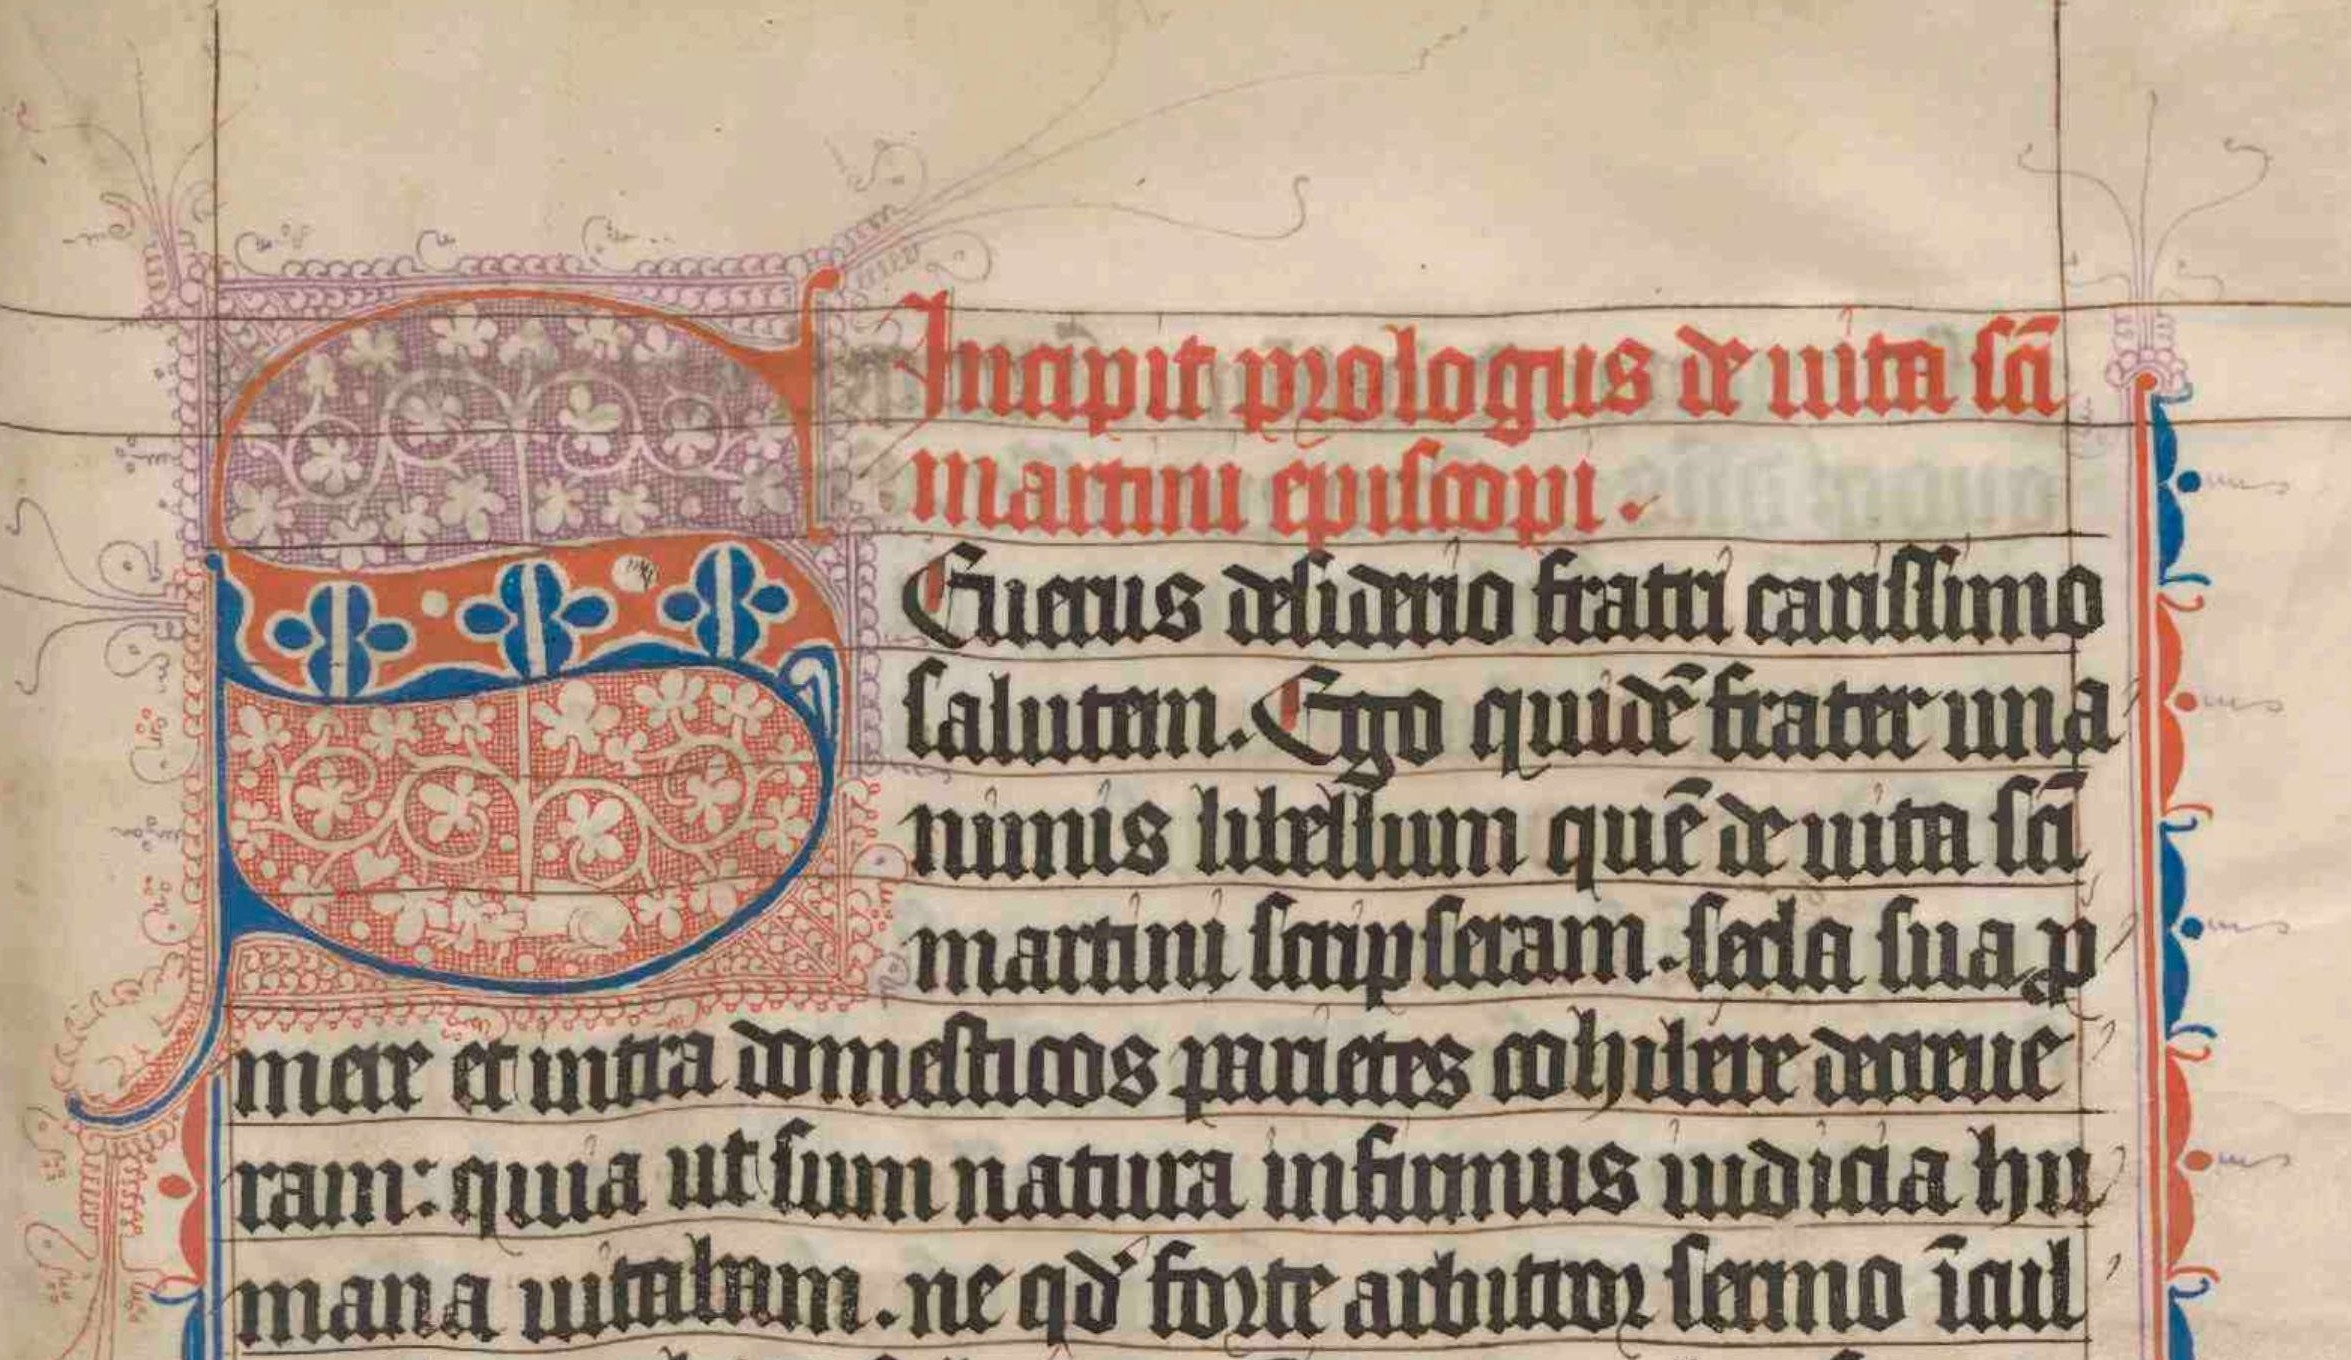 Incipit prologus de uita sc̄i
martini episcopi.
SEuerus desiderio fratri carissimo
salutem. Ego quidē frater una
nimis libellum quē de uita sc̄i
martini scripseram. sceda sua ꝑ
mere et intra domesticos parietes cohibere decreue
ram: quia ut sum natura infirmus iudicia hu
mana uitabam. ne qd' forte arbitror sermo īcul